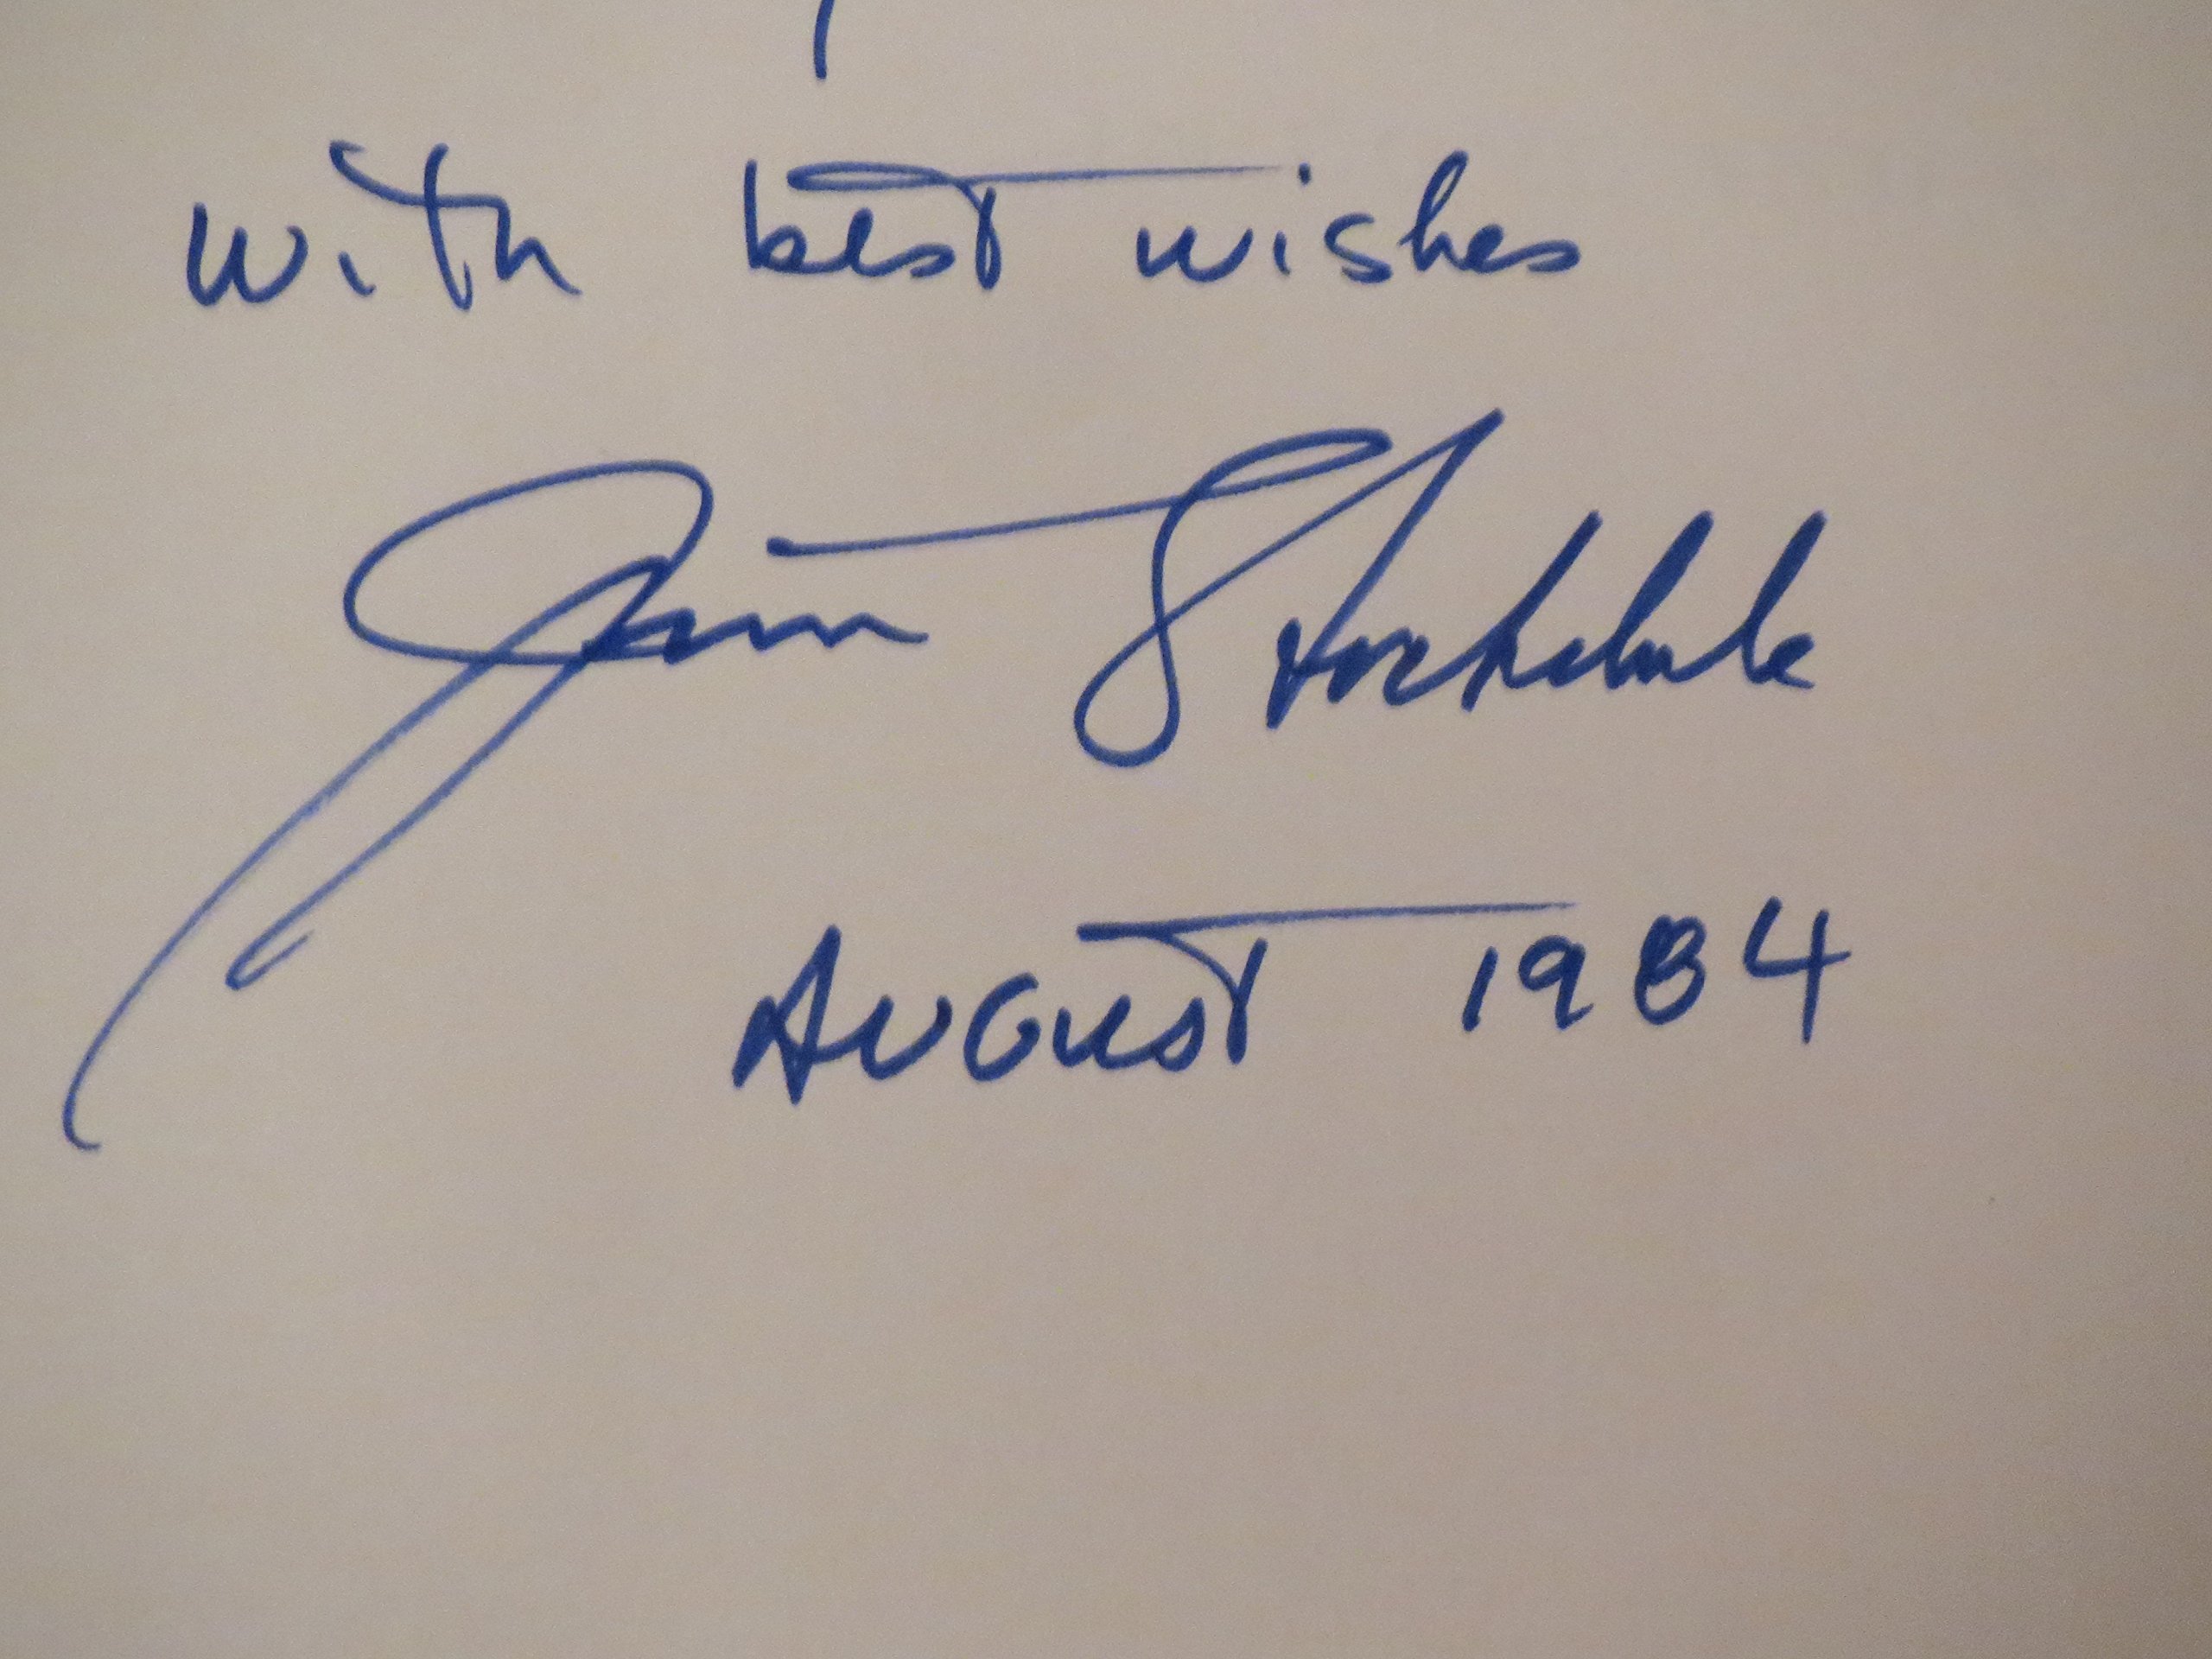 with best wishes
Jim Stockdale
August 1984